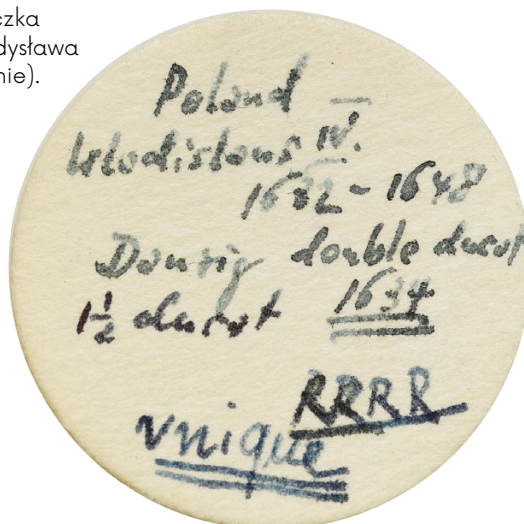 czka
dysława
nie).
Poland
Wladislaus IV.
1632-1648
Danzig double ducat
1½ ducat 1634
RRRR
unique